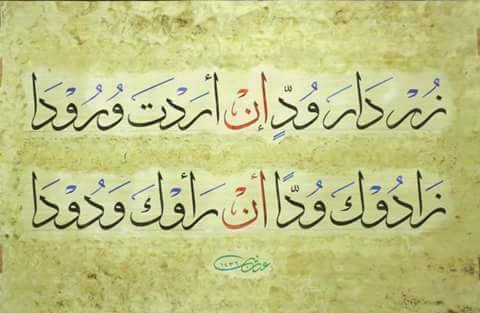 زُرْ دَارَ وُدٍّ إنْ أرَدْتَ وُرُوْدَا
زَادُوْكَ وُدًّا أنْ رَأوْكَ وَدُوْدَا
١٤٣٦